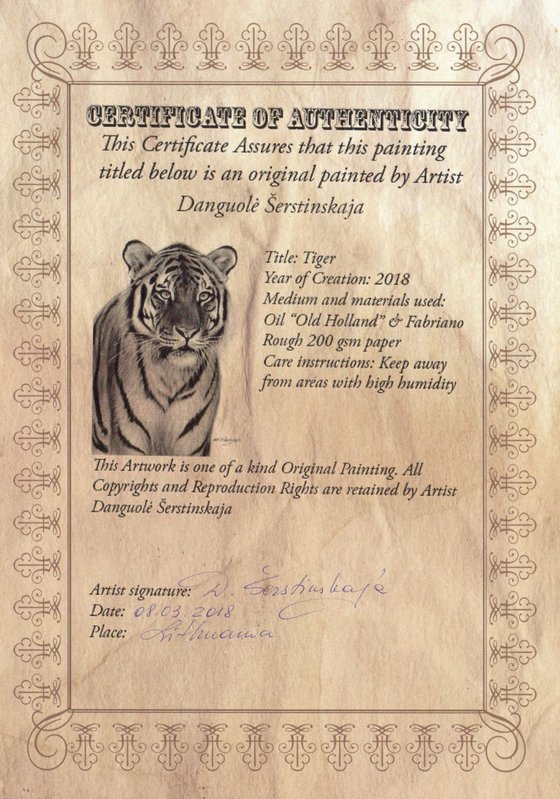 CERTIFICATE OF AUTHENTICITY
This Certificate Assures that this painting
titled below is an original painted by Artist
Danguolė Šerstinskaja
Title: Tiger
Year of Creation: 2018
Medium and materials used:
Oil “Old Holland” & Fabriano
Rough 200 gsm paper
Care instructions: Keep away
from areas with high humidity
This Artwork is one of a kind Original Painting. All
Copyrights and Reproduction Rights are retained by Artist
Danguolė Šerstinskaja
Artist signature: D. Šerstinskaja
Date: 08.03 2018
Place: Lithuania